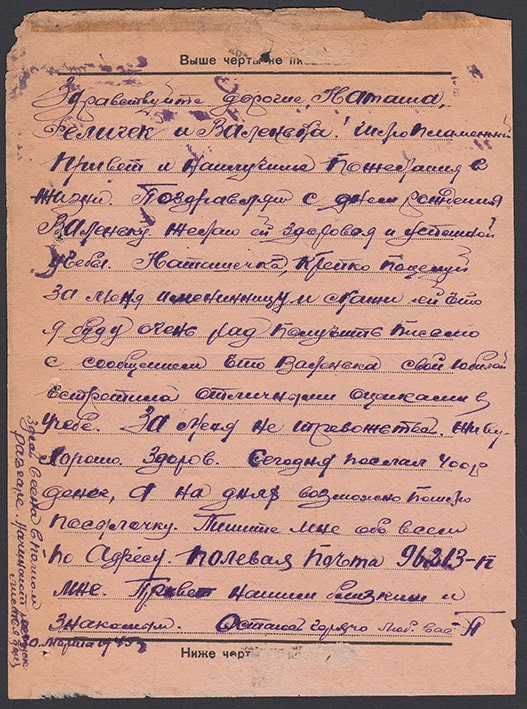 Выше черты не пи
Здравствуйте дорогие, Наташа,
Феличек и Валенька! Шлю пламенный
привет и наилучшие пожелания в
жизни. Поздравляю с днем рождения
Валеньку. Желаю ей здоровья и успешной
учебы. Наташечка, крепко поцелуй
за меня именинницу и скажи ей что
я буду очень рад получить письмо
с сообщением что Валенька свой юбилей
встретила отличными оценками в
учебе. За меня не тревожьтесь. Живу
хорошо. Здоров. Сегодня послал 400р
денег, а на днях возможно пошлю
посылочку. Пишите мне обо всем
по адресу. Полевая почта 96213-п
мне. Привет нашим близким и
знакомым. Остаюсь горячо люб. вас П
Ниже черт
Здесь весна в полном
разгаре. Начинают
листья
марта 1945